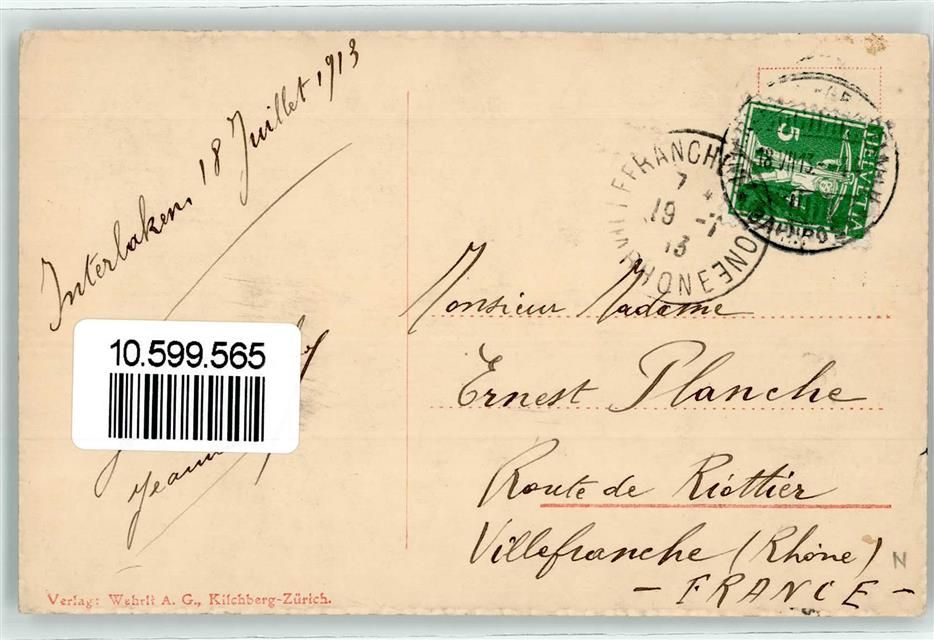 Interlaken, 18 Juillet 1913
10.599.565
HELVETIA
5
18.VII.13
VILLEFRANCHE
7
19 - 7
13
RHONE
Monsieur Madame
Ernest Planche
Route de Riottier
Villefranche (Rhône)
- FRANCE -
N
Verlag: Wehrli A. G., Kilchberg-Zürich.